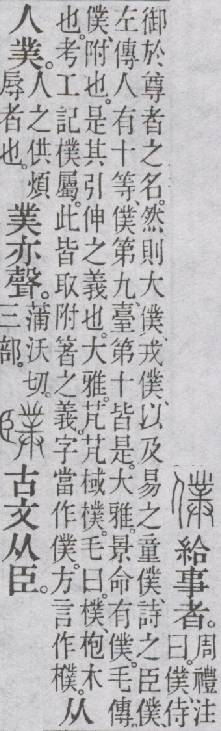 僕給事者。周禮注
曰。僕、侍
御於尊者之名。然則大僕、戎僕、以及易之童僕、詩之臣僕、
左傳人有十等、僕第九臺第十皆是。大雅。景命有僕。毛傳。
僕、附也。是其引伸之義也。大雅。芃芃棫樸。毛曰。樸、枹木
也。考工記樸屬。此皆取附著之義。字當作僕。方言作㯷。从
人菐。人之供煩
辱者也。
菐亦聲。蒲沃切。
三部。
䑑古文从臣。